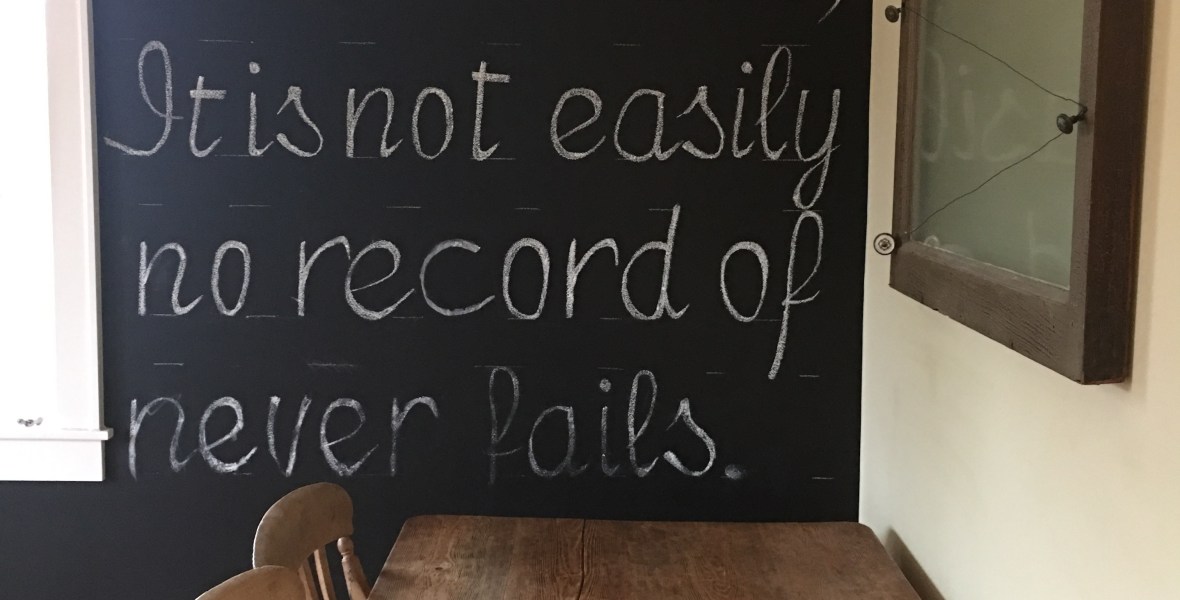 It is not easily
no record of
never fails.